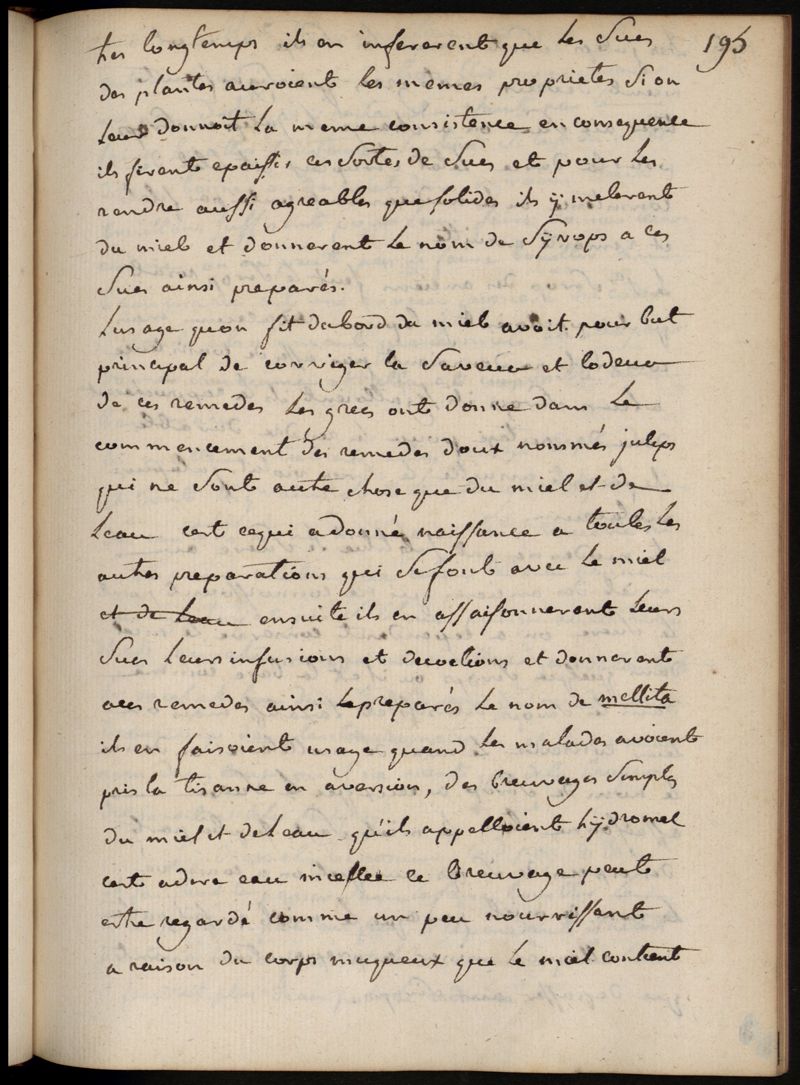 tres longtemps ils en infererent que les Sucs 195
des plantes auroient les memes proprietes Si on
leur donnoit la meme consistence en consequence
ils firent epaissir ces Sortes de Sucs et pour les
rendre aussi agreables que solides ils ÿ melerent
du miel et donnerent le nom de Sÿrops a ces
Sucs ainsi preparés.
lusage quon fit dabord du miel avoit pour but
principal de corriger la Saveur et lodeur
de ces remedes les grecs ont donne dans le
commencement des remedes doux nommés juleps
qui ne Sont autre chose que du miel et de
leau cest cequi a donné naissance a toutes les
autres preparations qui Sefont avec le miel
et de leau ensuite ils en assaisonnerent leurs
Sucs leurs infusions et decoctions et donnerent
aces remedes ainsi preparés le nom de mellita
ils en faisoient usage quand les malades avoient
pris la tisanne en aversion, des breuvages Simples
du miel et deleau qu'ils appelloient hÿdromel
cest adire eau miellee ce breuvage peut
estre regardé comme un peu nourrissant
a raison du corps muqueux que le miel contient